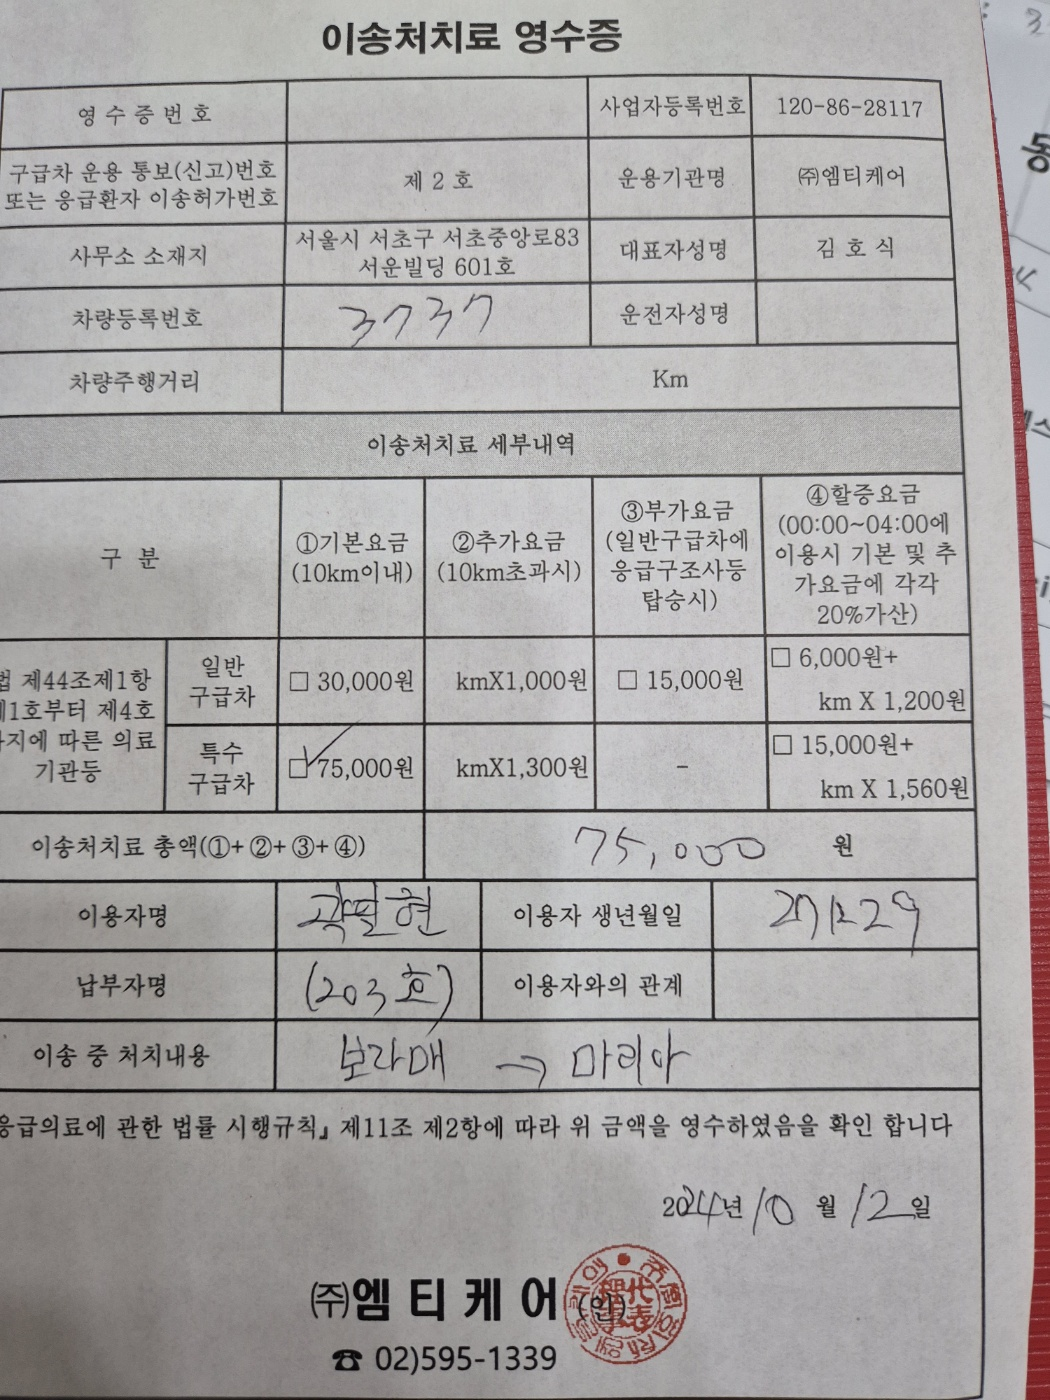 이송처치료 영수증
영 수 증 번 호
사업자등록번호 120-86-28117
구급차 운용 통보(신고)번호
또는 응급환자 이송허가번호
제 2 호
운용기관명 ㈜엠티케어
사무소 소재지
서울시 서초구 서초중앙로83
서운빌딩 601호
대표자성명 김 호 식
차량등록번호 3737 운전자성명
차량주행거리 Km
이송처치료 세부내역
구 분
①기본요금
(10km이내)
②추가요금
(10km초과시)
③부가요금
(일반구급차에
응급구조사등
탑승시)
④할증요금
(00:00~04:00에
이용시 기본 및 추
가요금에 각각
20%가산)
법 제44조제1항
제1호부터 제4호
까지에 따른 의료
기관등
일반
구급차
□ 30,000원 kmX1,000원 □ 15,000원
□ 6,000원+
km X 1,200원
특수
구급차
☑ 75,000원 kmX1,300원 -
□ 15,000원+
km X 1,560원
이송처치료 총액(①+②+③+④) 75,000 원
이용자명 곽필현 이용자 생년월일 271229
납부자명 (203호) 이용자와의 관계
이송 중 처치내용 보라매 → 마리아
응급의료에 관한 법률 시행규칙』 제11조 제2항에 따라 위 금액을 영수하였음을 확인 합니다
2024년 10 월 12일
㈜엠 티 케 어 (인)
☎ 02)595-1339